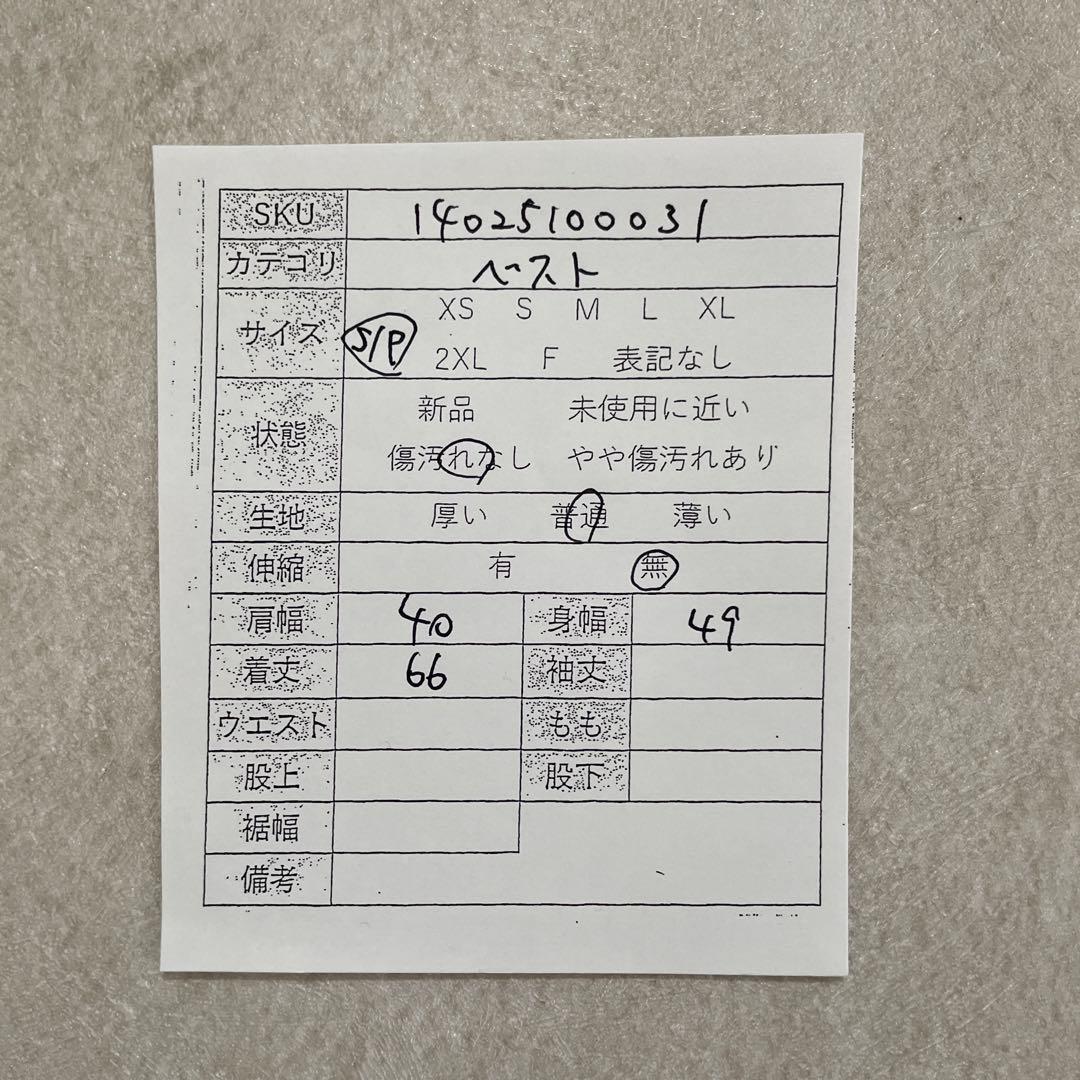 SKU 14025100031
カテゴリ ベスト
サイズ XS S M L XL
S/P 2XL F 表記なし
状態 新品 未使用に近い
傷汚れなし やや傷汚れあり
生地 厚い 普通 薄い
伸縮 有 無
肩幅 40 身幅 49
着丈 66 袖丈
ウエスト もも
股上 股下
裾幅
備考